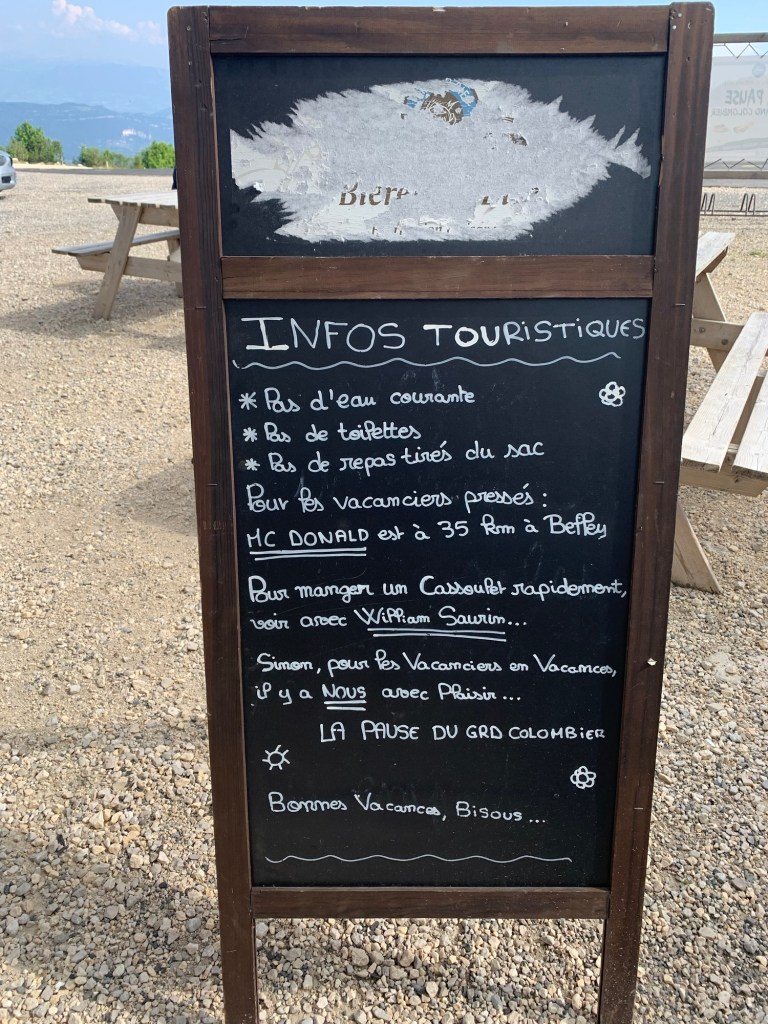 Bière
INFOS TOURISTIQUES
* Pas d'eau courante
* Pas de toilettes
* Pas de repas tirés du sac
Pour les vacanciers pressés :
MC DONALD est à 35 km à Belley
Pour manger un Cassoulet rapidement,
voir avec William Saurin...
Sinon, pour les Vacanciers en Vacances,
il y a NOUS avec Plaisir...
LA PAUSE DU GRD COLOMBIER
Bonnes Vacances, Bisous...
PAUSE
COLOMBIER